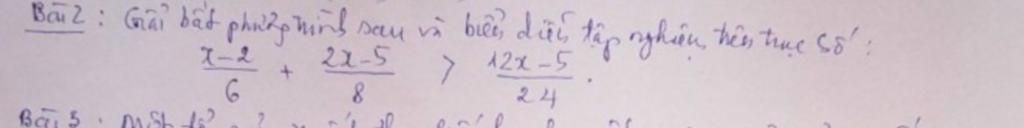 Bài 2 : Giải bất phương trình sau và biểu diễn tập nghiệm trên trục số :
x-2/6 + 2x-5/8 > 12x-5/24 .
Bài 3 :